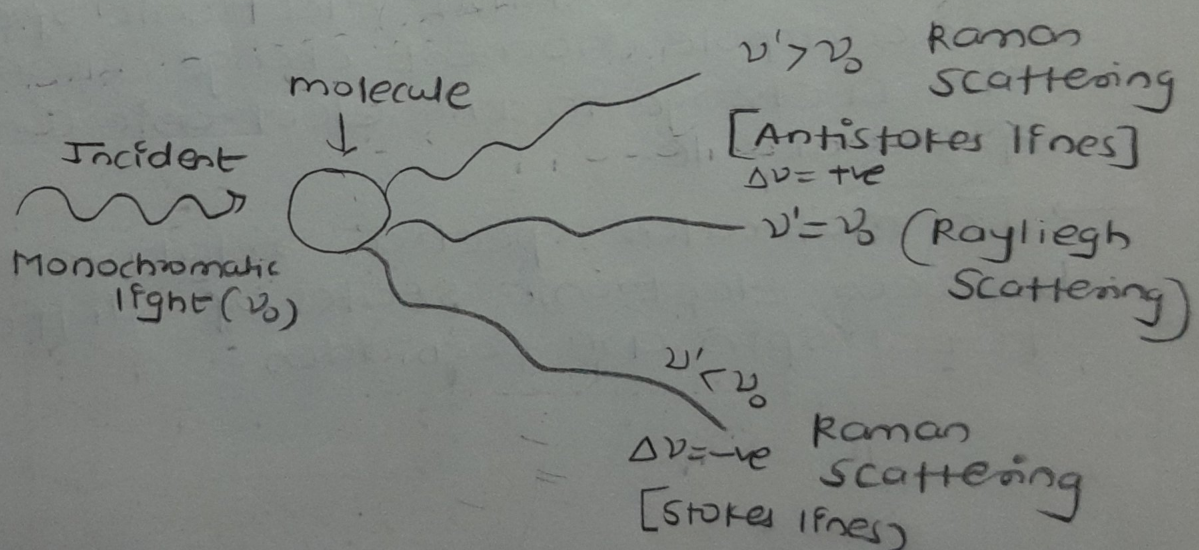 molecule
↓
Incident
Monochromatic
light (ν₀)
ν' > ν₀ Raman
Scattering
[Antistokes lines]
Δν = +ve
ν' = ν₀ (Rayliegh
Scattering)
ν' < ν₀
Δν = -ve Raman
Scattering
[Stokes lines)